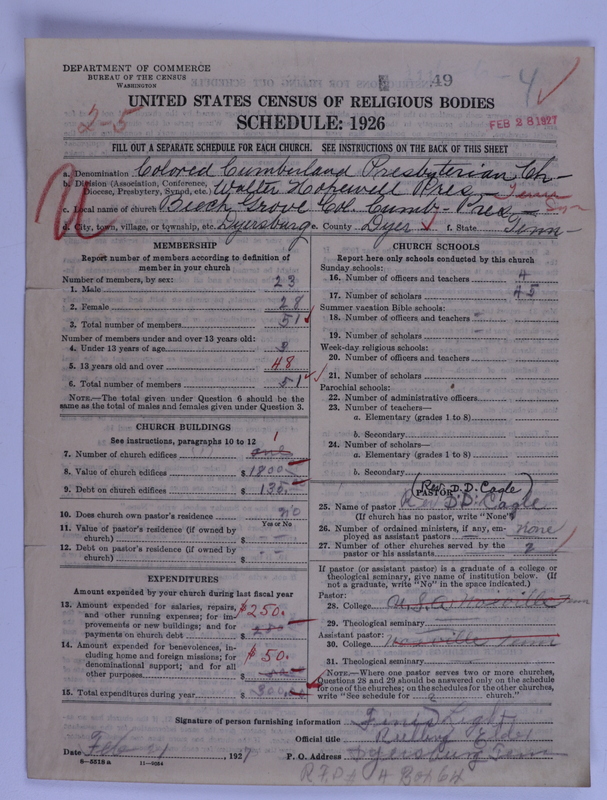 DEPARTMENT OF COMMERCE
BUREAU OF THE CENSUS
WASHINGTON
49
-4
UNITED STATES CENSUS OF RELIGIOUS BODIES
2-5
SCHEDULE: 1926
FEB 28 1927
FILL OUT A SEPARATE SCHEDULE FOR EACH CHURCH. SEE INSTRUCTIONS ON THE BACK OF THIS SHEET
a. Denomination Colored Cumberland Presbyterian Ch-
b. Division (Association, Conference, Diocese, Presbytery, Synod, etc.) Walter Hopewell Pres- Tenn Syn
c. Local name of church Beech Grove Col. Cumb- Pres-
d. City, town, village, or township, etc. Dyersburg e. County Dyer f. State Tenn-
MEMBERSHIP
Report number of members according to definition of member in your church
Number of members, by sex:
1. Male 23
2. Female 28
3. Total number of members 51
Number of members under and over 13 years old:
4. Under 13 years of age 3
5. 13 years old and over 48
6. Total number of members 51
NOTE.—The total given under Question 6 should be the same as the total of males and females given under Question 3.
CHURCH BUILDINGS
See instructions, paragraphs 10 to 12
7. Number of church edifices one 1
8. Value of church edifices $1800
9. Debt on church edifices $135.
10. Does church own pastor's residence no
Yes or No
11. Value of pastor's residence (if owned by church) $
12. Debt on pastor's residence (if owned by church) $
EXPENDITURES
Amount expended by church during last fiscal year
13. Amount expended for salaries, repairs, and other running expenses; for improvements or new buildings; and for payments on church debt $250.
14. Amount expended for benevolences, including home and foreign missions; for denominational support; and for all other purposes $50.
15. Total expenditures during year $300
CHURCH SCHOOLS
Report here only schools conducted by this church
Sunday schools:
16. Number of officers and teachers 4
17. Number of scholars 45
Summer vacation Bible schools:
18. Number of officers and teachers
19. Number of scholars
Week-day religious schools:
20. Number of officers and teachers
21. Number of scholars
Parochial schools:
22. Number of administrative officers
23. Number of teachers—
a. Elementary (grades 1 to 8)
b. Secondary
24. Number of scholars—
a. Elementary (grades 1 to 8)
b. Secondary
(Rev. D.D. Cagle)
PASTOR
25. Name of pastor Rev D.D. Cagle
(If church has no pastor, write "None")
26. Number of ordained ministers, if any, employed as assistant pastors none
27. Number of other churches served by the pastor or his assistants 2
If pastor (or assistant pastor) is a graduate of a college or theological seminary, give name of institution below. (If not a graduate, write "No" in the space indicated.)
Pastor:
28. College
29. Theological seminary
Assistant pastor:
30. College
31. Theological seminary
NOTE.—Where one pastor serves two or more churches, Questions 28 and 29 should be answered only on the schedule for one of the churches; on the schedules for the other churches, write "See schedule for church."
Signature of person furnishing information Finis Light
Official title Rulling Elder
Date Feb 21, 1927 P. O. Address Dyersburg Tenn
6-5518 a 11-9054
R.F.D # 4 Box 64